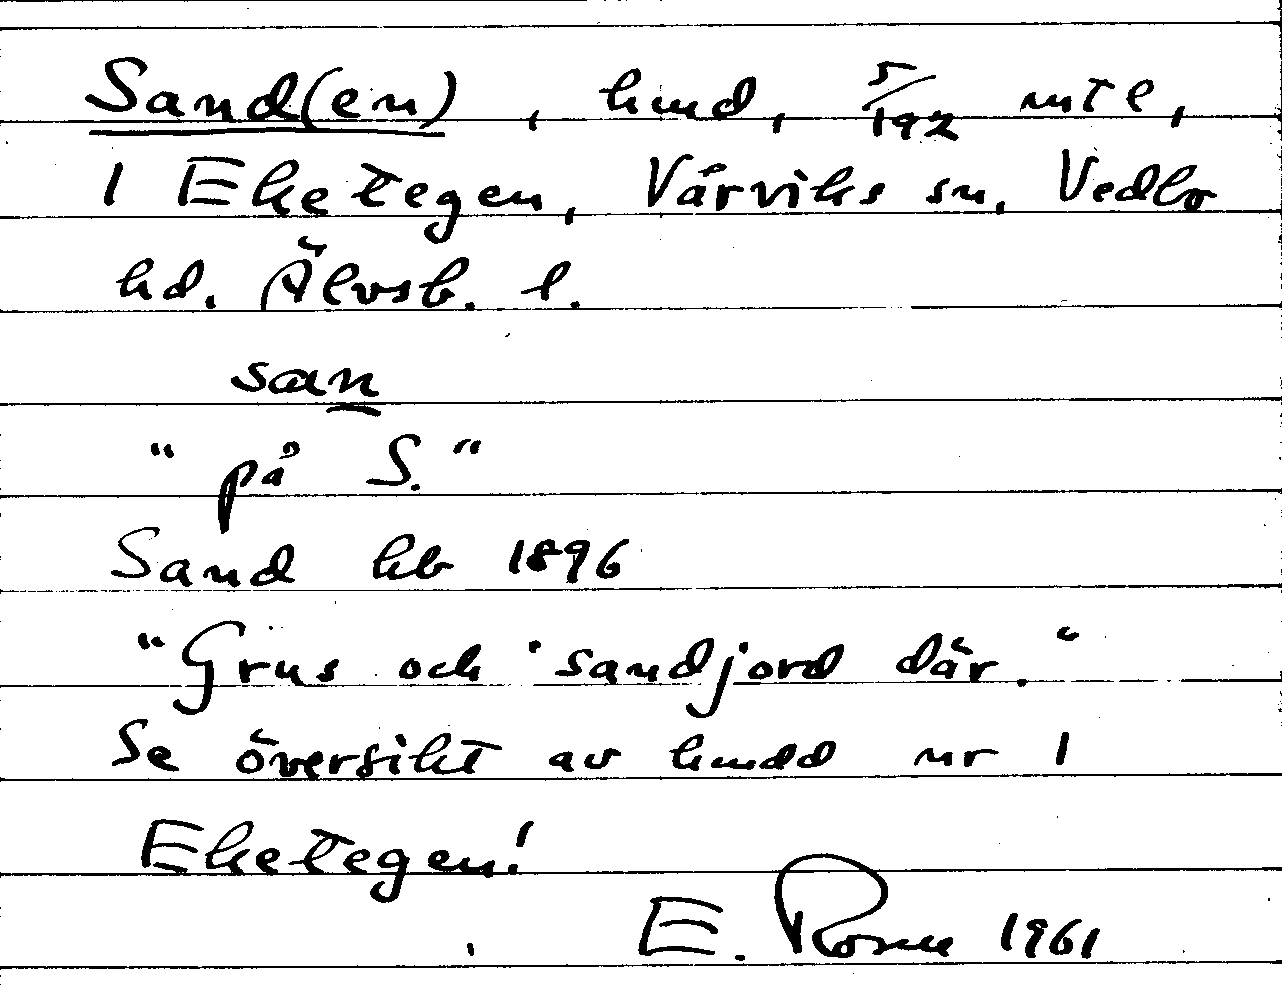 Sand(en), hmd, 5/192 mtl,
1 Eketegen, Vårviks sn, Vedbo
hd. Älvsb. l.
san
"på S."
Sand kb 1896
"Grus och sandjord där."
Se översikt av hmdd nr 1
Eketegen!
E. 1961